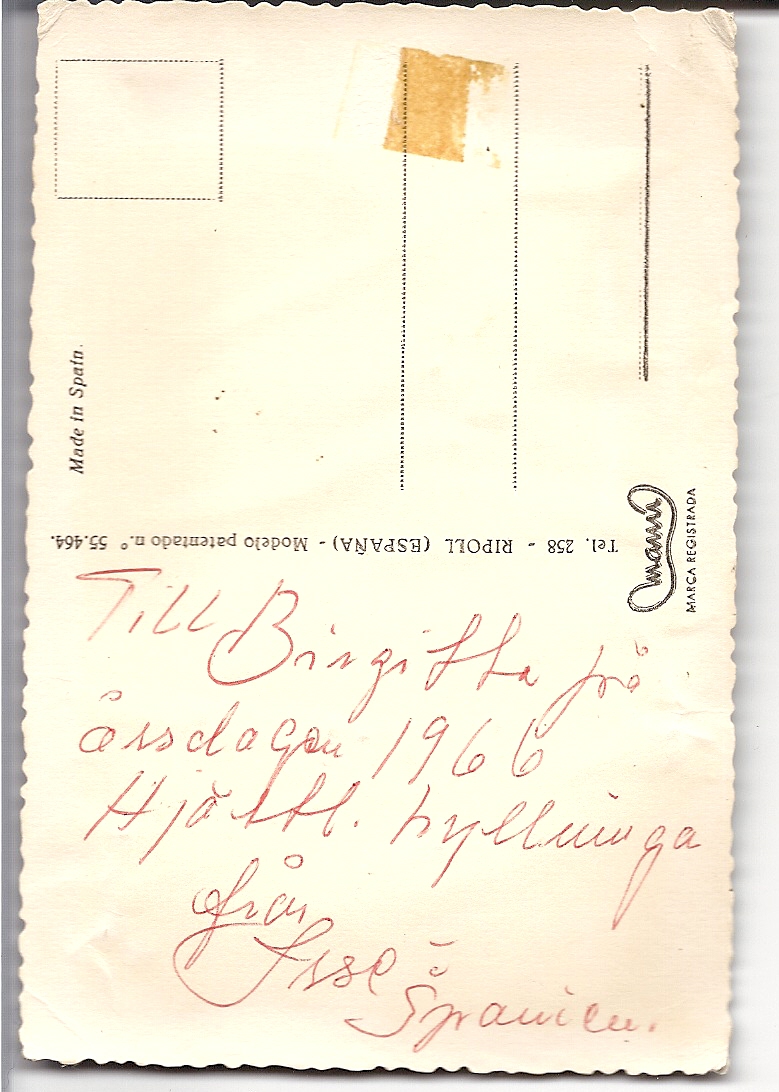 Made in Spain.
Tel. 258 - RIPOLL (ESPAÑA) - Modelo patentado n.º 55.464.
MARCA REGISTRADA
Till Birgitta på
årsdagen 1966
Hjärtl. hyllninga
från
Spanien.